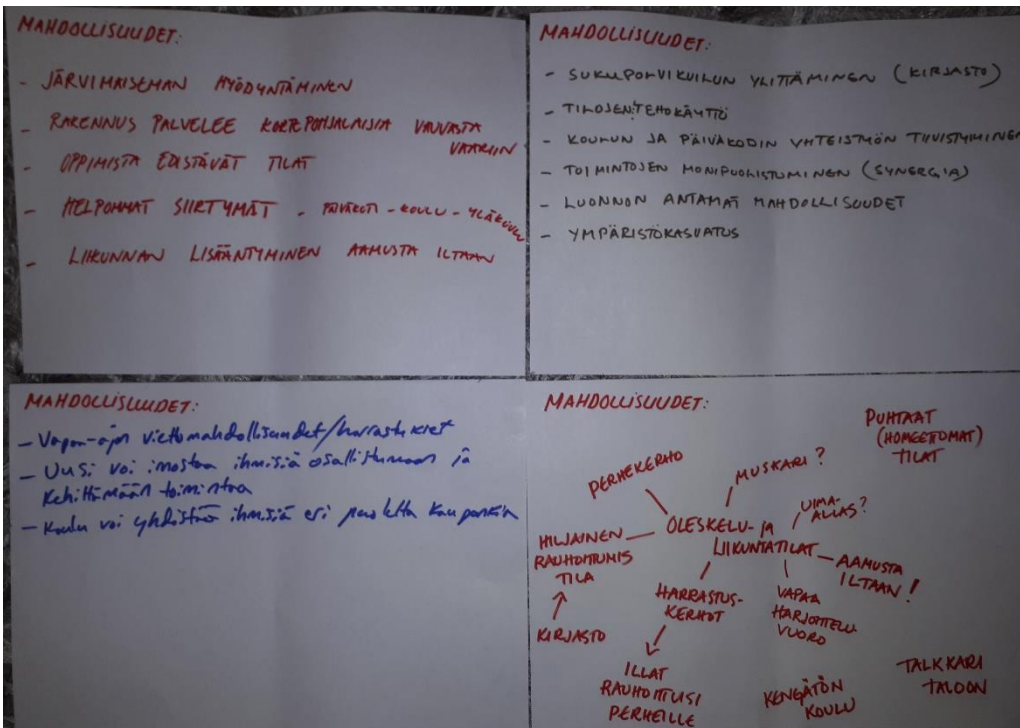 MAHDOLLISUUDET:
- JÄRVIMAISEMAN HYÖDYNTÄMINEN
- RAKENNUS PALVELEE KORTEPOHJALAISIA VAUVASTA
VAARIIN
- OPPIMISTA EDISTÄVÄT TILAT
- HELPOMMAT SIIRTYMÄT - PÄIVÄKOTI - KOULU - YLÄKOULU
- LIIKUNNAN LISÄÄNTYMINEN AAMUSTA ILTAAN
MAHDOLLISUUDET:
- SUKUPOLVIKUILUN YLITTÄMINEN (KIRJASTO)
- TILOJEN TEHOKÄYTTÖ
- KOULUN JA PÄIVÄKODIN YHTEISTYÖN TIIVISTYMINEN
- TOIMINTOJEN MONIPUOLISTUMINEN (SYNERGIA)
- LUONNON ANTAMAT MAHDOLLISUUDET
- YMPÄRISTÖKASVATUS
MAHDOLLISUUDET:
- Vapaa-ajan viettomahdollisuudet/harrastukset
- Uusi voi innostaa ihmisiä osallistumaan ja
kehittämään toimintaa
- Koulu voi yhdistää ihmisiä eri puolelta kaupunkia
MAHDOLLISUUDET:
PUHTAAT
(HOMEETTOMAT)
TILAT
PERHEKERHO
MUSKARI?
UIMA-
ALLAS?
OLESKELU- JA
LIIKUNTATILAT
AAMUSTA
ILTAAN!
HILJAINEN
RAUHOITUMIS
TILA
KIRJASTO
HARRASTUS-
KERHOT
VAPAA
HARJOITTELU
VUORO
ILLAT
RAUHOITTUISI
PERHEILLE
KENGÄTÖN
KOULU
TALKKARI
TALOON